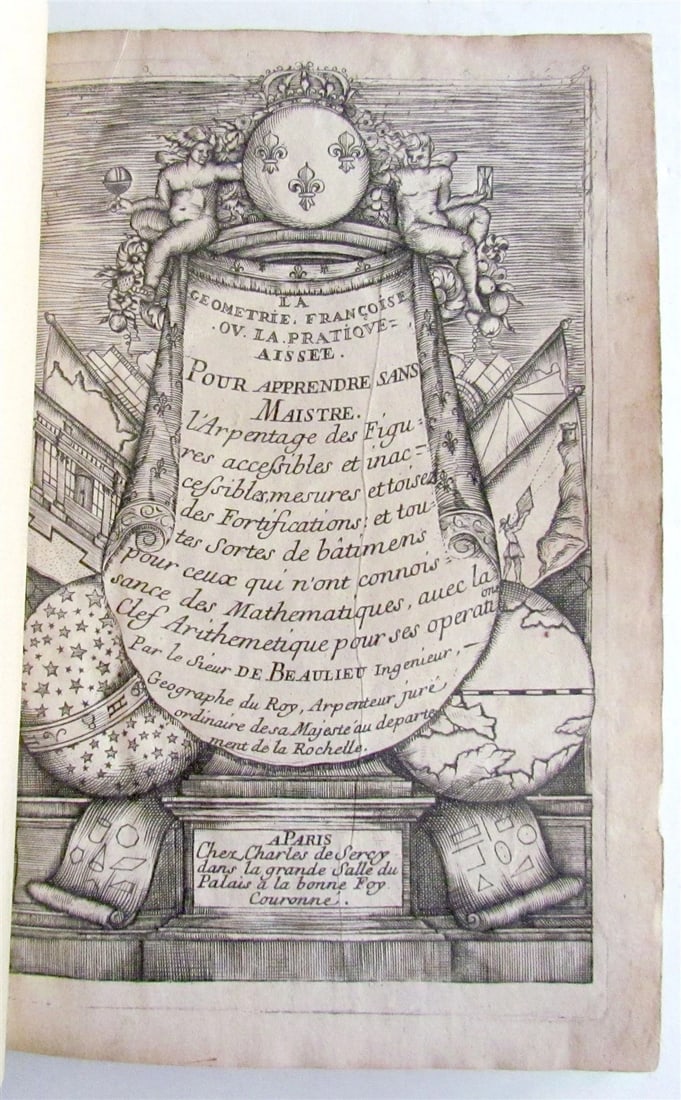 LA
GEOMETRIE. FRANÇOISE
.OV. LA. PRATIQVE=
AISSEE.
POUR APPRENDRE SANS
MAISTRE.
l'Arpentage des Figu=
res accessibles et inac=
cessibles, mesures et toisez
des Fortifications, et tou=
tes Sortes de bâtimens
pour ceux qui n'ont connois=
sance des Mathematiques, avec la
Clef Arithemetique pour ses operati
ons
Par le Sieur DE BEAULIEU Ingenieur,
Geographe du Roy, Arpenteur juré
ordinaire de sa Majesté au departe
ment de la Rochelle.
A PARIS
Chez Charles de Sercy
dans la grande Salle du
Palais à la bonne Foy
Couronne.